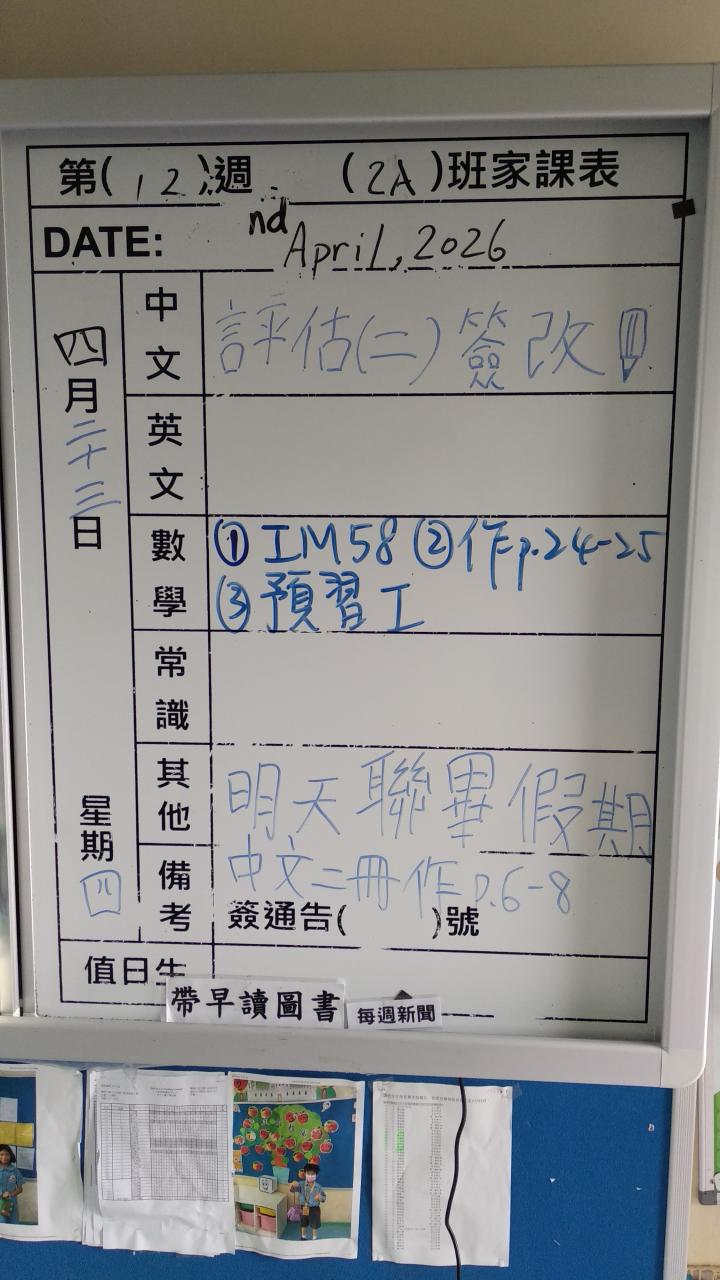 第( 12 )週 (2A)班家課表
DATE: nd April, 2026
四月二十三日
星期四
中文
評估(二)簽改
英文
數學
① IM58 ② 作p.24-25
③ 預習工
常識
其他
明天聯畢假期
備考
中文二冊作P.6-8
簽通告( )號
值日生
帶早讀圖書
每週新聞